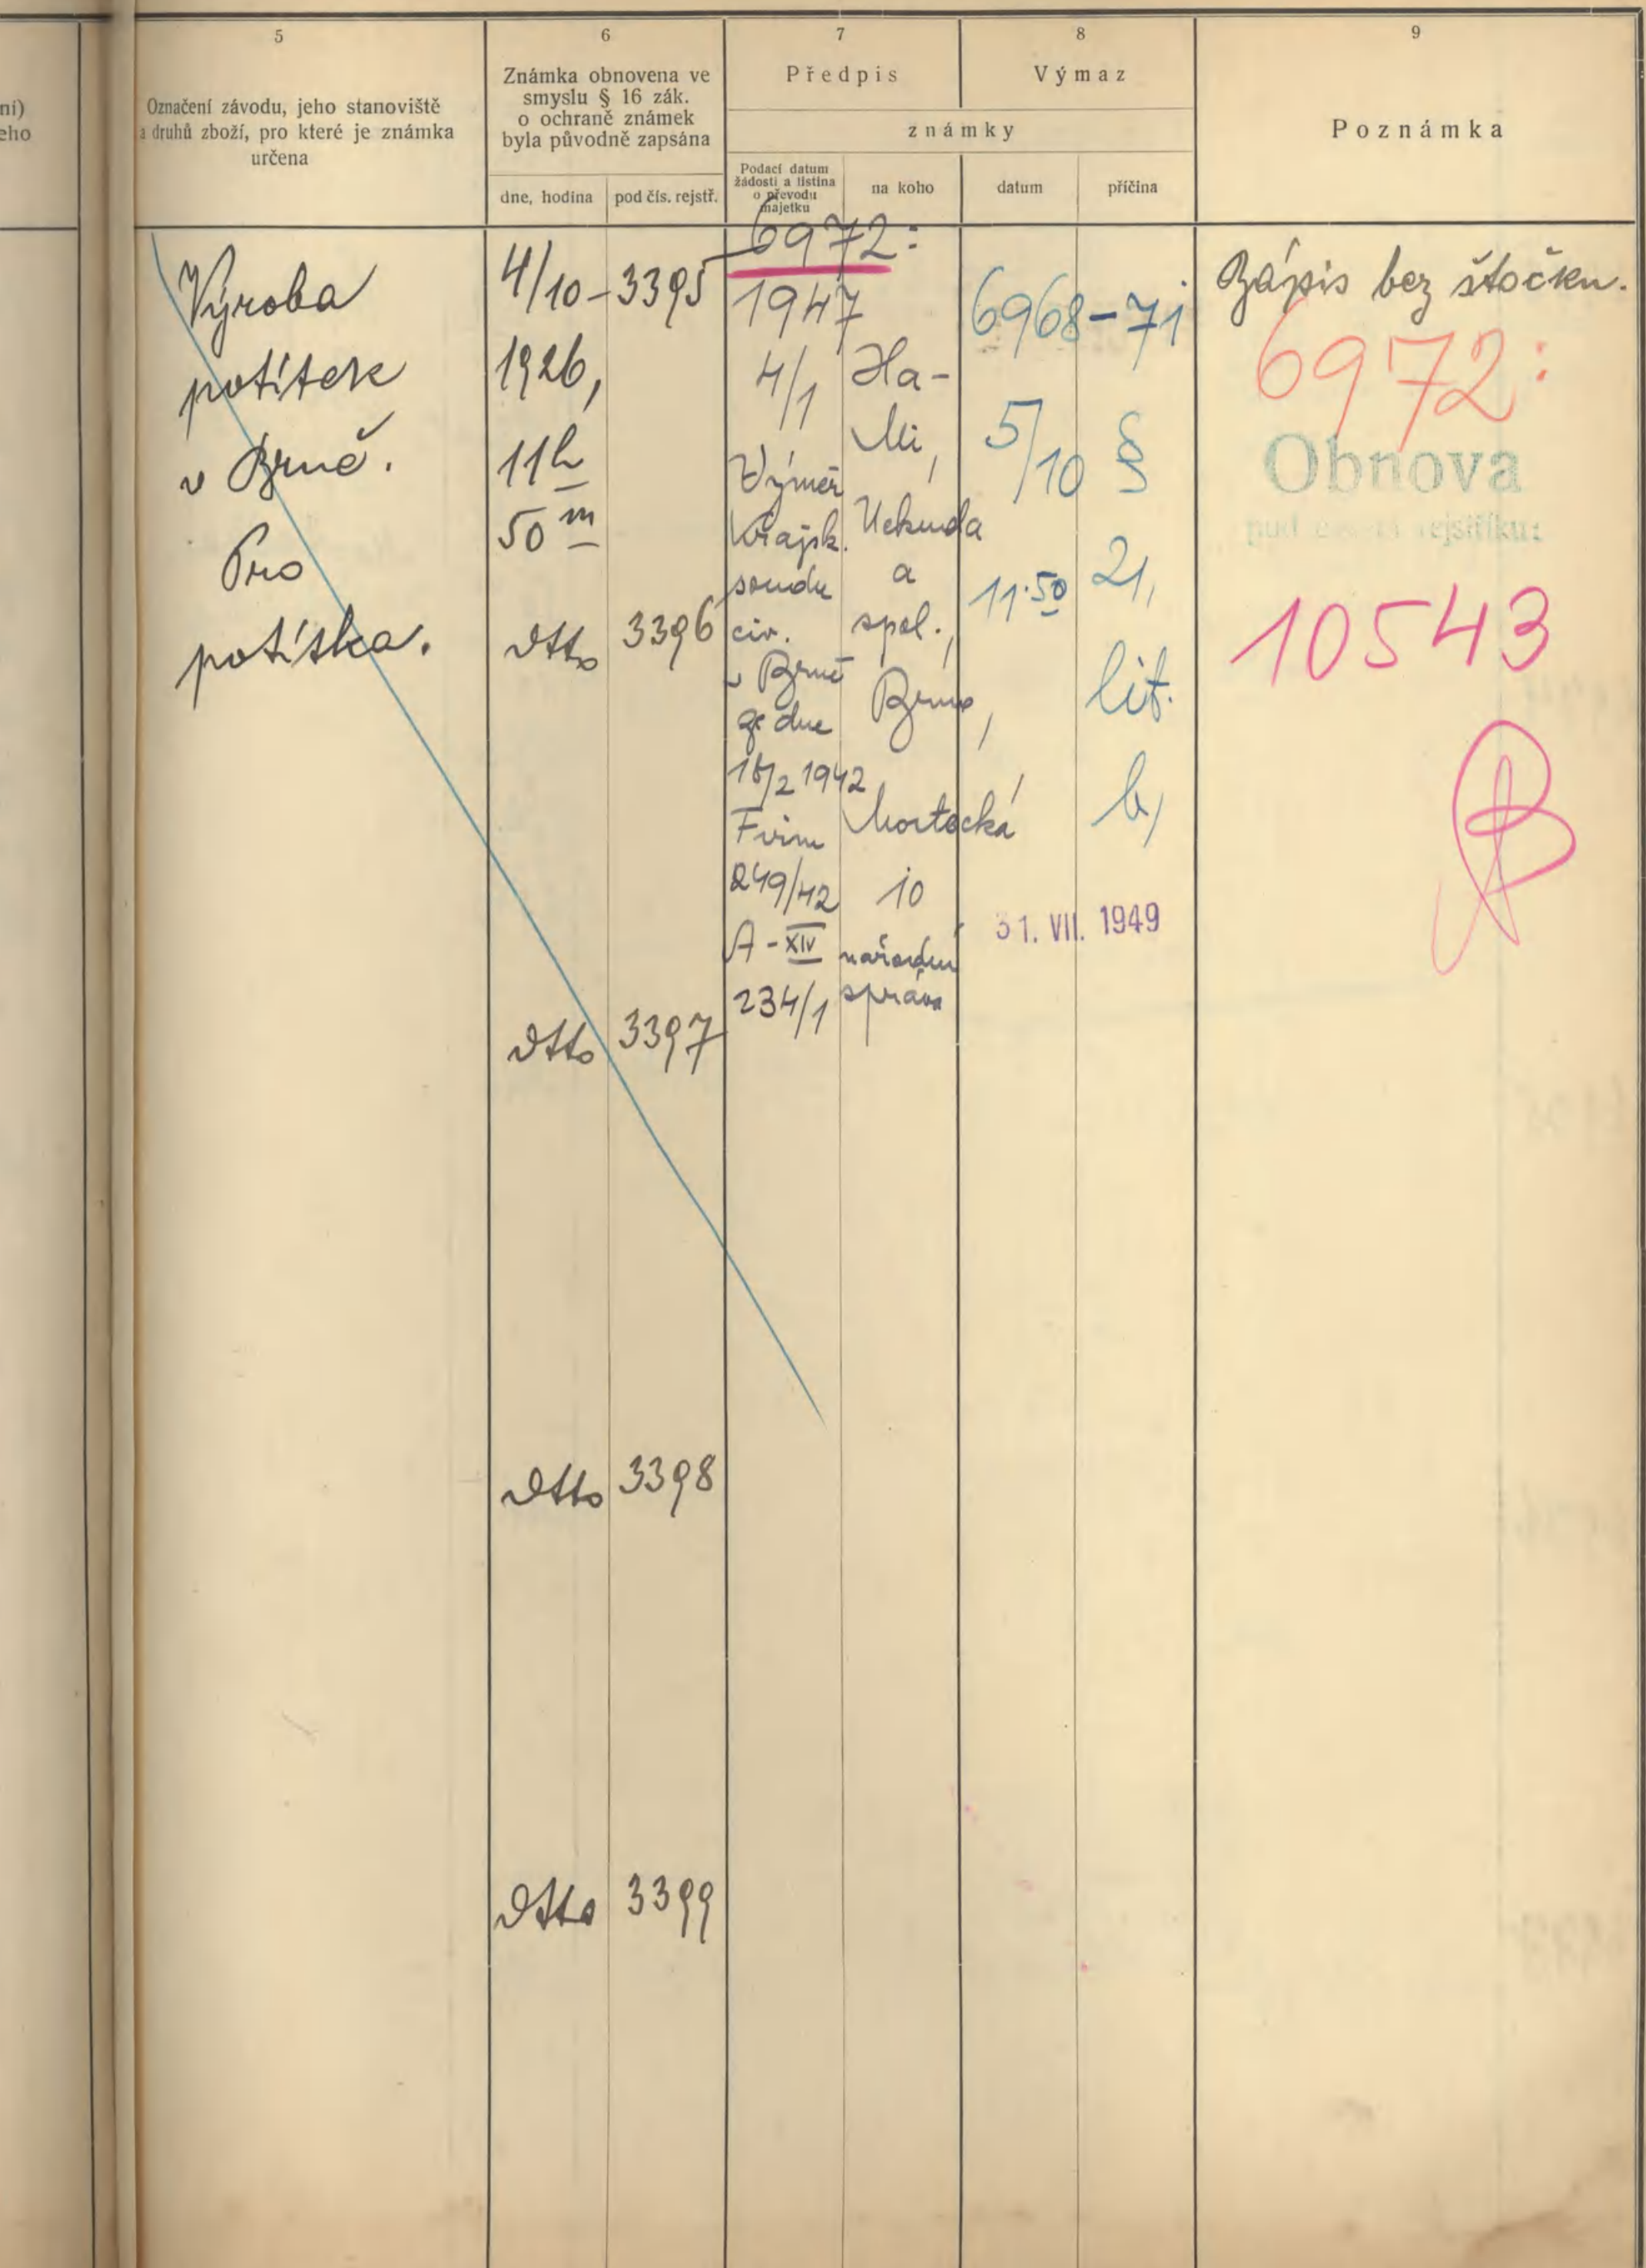 ní)
eho
5
Označení závodu, jeho stanoviště
a druhů zboží, pro které je známka
určena
6
Známka obnovena ve
smyslu § 16 zák.
o ochraně známek
byla původně zapsána
dne, hodina
pod čís. rejstř.
7
Předpis
8
Výmaz
známky
Podací datum
žádosti a listina
o převodu
majetku
na koho
datum
příčina
9
Poznámka
Výroba
potítek
v Brně.
Pro
potítka.
4/10-
1926,
11h
50m
3395
dtto 3396
dtto 3397
dtto 3398
dtto 3399
6972:
1947
4/1
Výměr
Krajsk.
soudu
civ.
v Brně
ze dne
18/2 1942
Firm
249/42
A-XIV
234/1
Ha-
a
spol.,
Brno,
10
národní
správa
6968-71
5/10
11·50
§
21,
lit.
b,
31. VII. 1949
Zápis bez štočku.
6972:
Obnova
pod rejstříku:
10543